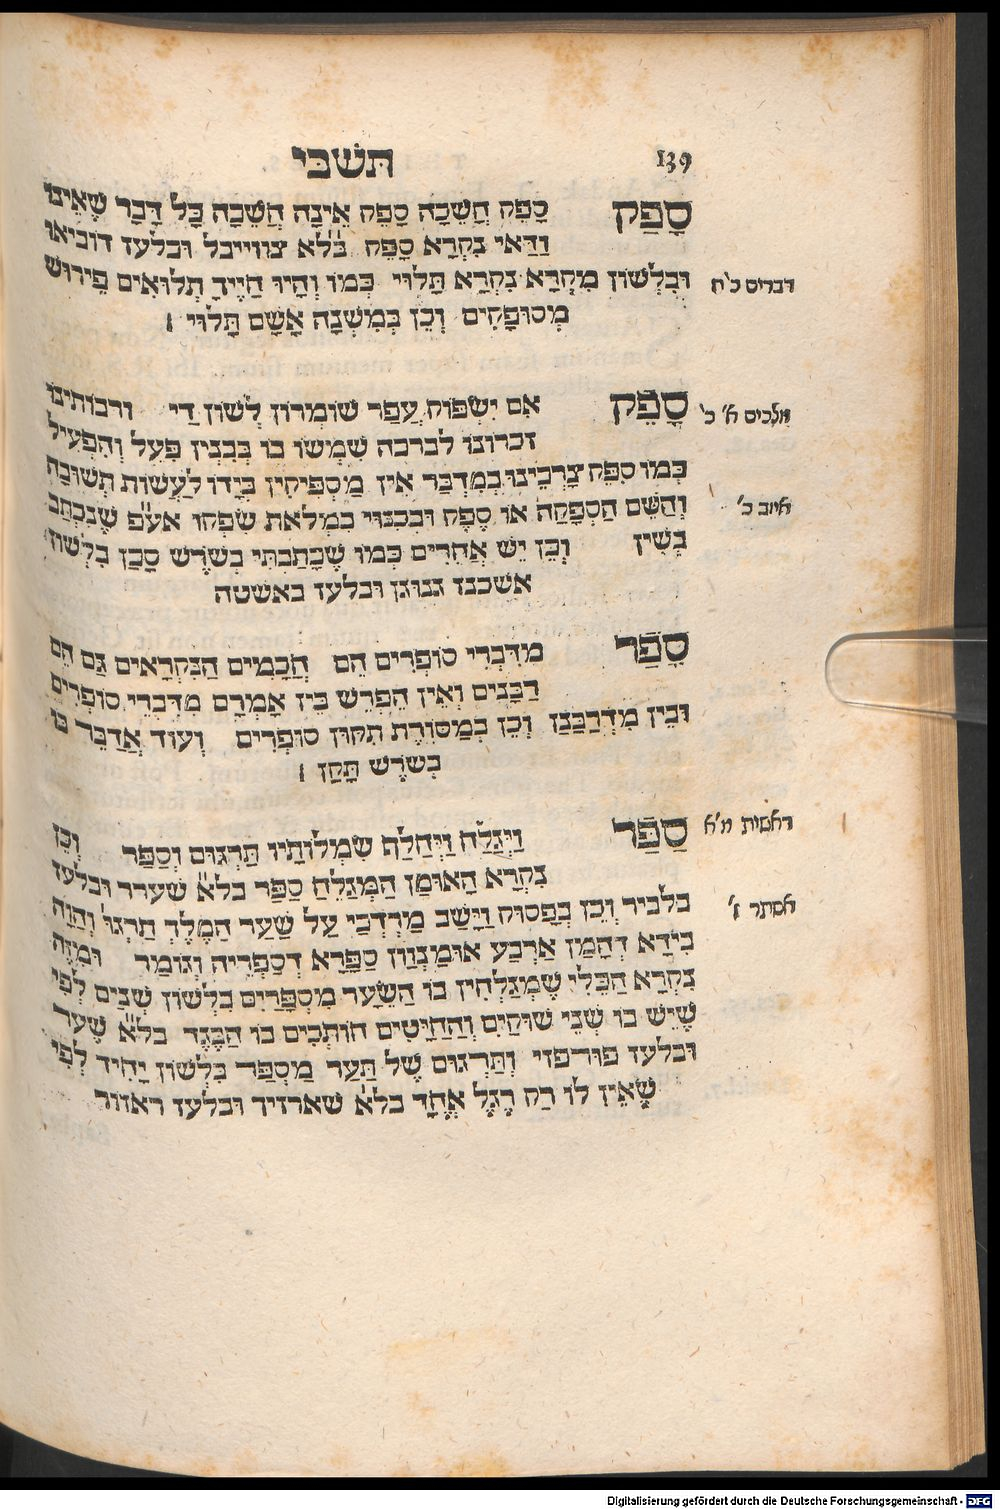 תשבי 139
סָפֵק סָפֵק חֲשֵׁכָה סָפֵק אֵינָה חֲשֵׁכָה כָּל דָּבָר שֶׁאֵינוֹ
וַדַּאי נִקְרָא סָפֵק בל״א צווייבל ובלעז דוביאו
וּבִלְשׁוֹן מִקְרָא נִקְרָא תַּלוּי כְּמוֹ וְהָיוּ חַיֶּיךָ תְלוּאִים פֵּירוּשׁ
מְסוּפָּקִים וְכֵן בְּמִשְׁנָה אָשָׁם תָּלוּי ׃
דברים כ״ח
סָפֵק אִם יִשְׂפּוֹק עֲפַר שׁוֹמְרוֹן לְשׁוֹן דַי וְרבותינו
זכרונו לברכה שִׁמְּשׁוּ בוֹ בְּבִנְיַן פִּעֵל וְהִפְעִיל
כְּמוֹ סִפֵּק צָרְכֵינוּ בַמִּדְבָּר אֵין מַסְפִּיקִין בְּיָדוֹ לַעֲשׂוֹת תְּשׁוּבָה
וְהַשֵּׁם הַסְפָּקָה אוֹ סֶפֶק וּבְכִנּוּי בִמְלֹאת שִׂפְקוֹ אע״פ שֶׁנִּכְתַּב
בְּשִׂין וְכֵן יֵשׁ אֲחֵרִים כְּמוֹ שֶׁכָּתַבְתִּי בְשֹׁרֶשׁ סָכַן בִּלְשׁוֹן
אשכנז גנוגן ובלעז באשטה
מלכים א׳ כ׳
איוב כ׳
סֵפֶר מִדִּבְרֵי סוֹפְרִים הֵם חֲכָמִים הַנִּקְרָאִים גַּם הֵם
רַבָּנִים וְאֵין הֶפְרֵשׁ בֵּין אָמְרָם מִדִּבְרֵי סוֹפְרִים
וּבֵין מִדְּרַבָּנַן וְכֵן בְּמַסּוֹרֶת תִּקּוּן סוֹפְרִים וְעוֹד אֲדַבֵּר בּוֹ
בְּשֹׁרֶשׁ תָּקַן ׃
סַפָּר וַיְּגַלַּח וַיְּחַלֵּף שִׂמְלוֹתָיו תַּרְגּוּם וְסַפַּר וְכֵן
נִקְרָא הָאוּמָן הַמְּגַלֵּחַ סַפָּר בל״א שערר ובלעז
בלביר וְכֵן בְּפָסוּק וַיָּשָׁב מָרְדְּכַי עַל שַׁעַר הַמֶּלֶךְ תַּרְגּוּ׳ וְהָוָה
בִידָא דְהָמָן אַרְבַּע אוּמַנְוָון סַפָּרָא דְסַפְרֵיהּ וְגוֹמַר וּמִזֶּה
נִקְרָא הַכְּלִי שֶׁמְּגַלְּחִין בּוֹ הַשֵּׂעָר מִסְפָּרַיִם בִּלְשׁוֹן שְׁנַיִם לְפִי
שֶׁיֵּשׁ בּוֹ שְׁנֵי שׁוּקַיִם וְהַחַיָּטִים חוֹתְכִים בּוֹ הַבֶּגֶד בל״א שער
ובלעז פורפזי וְתַרְגּוּם שֶׁל תַּעַר מַסְפַּר בִּלְשׁוֹן יָחִיד לְפִי
שֶׁאֵין לוֹ רַק רֶגֶל אֶחָד בל״א שארזיך ובלעז ראזור
ראשית מ״א
אסתר ו׳
Digitalisierung gefördert durch die Deutsche Forschungsgemeinschaft - DFG